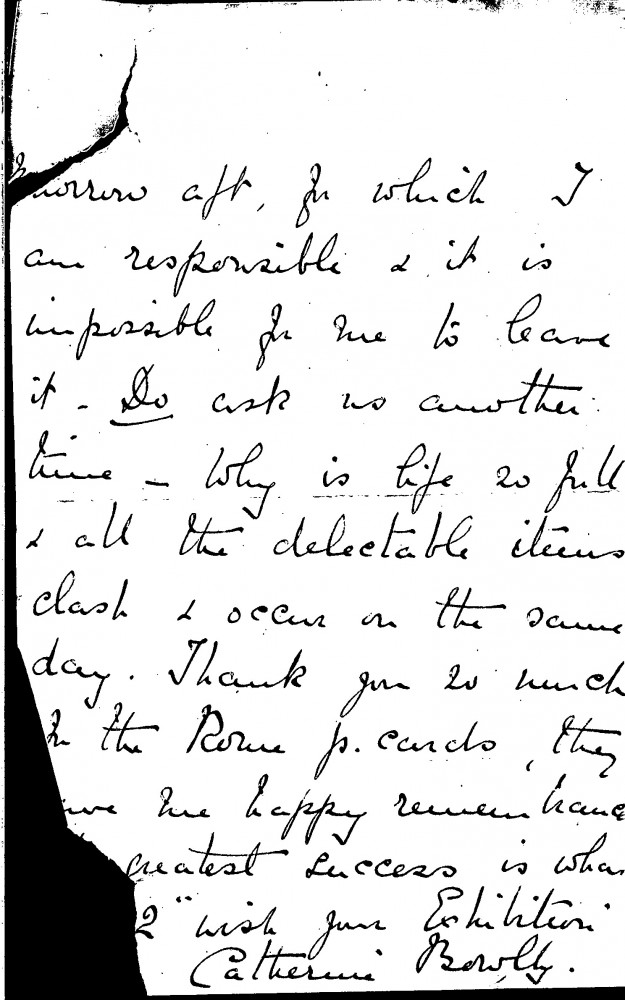 morrow aft, for which I
am responsible & it is
impossible for me to leave
it - Do ask us another
time - Why is life so full
& all the delectable items
clash & occur on the same
day. Thank you so much
for the Rome p. cards, they
me happy remembrance
greatest success is what
wish your Exhibition
Catherine Bowlly.